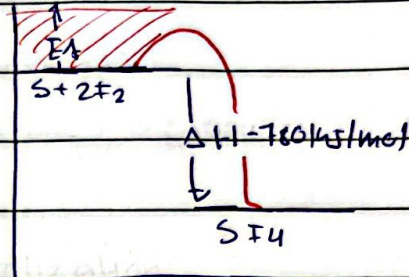 EA
S+2F₂
ΔH -780kJ/mol
SF4